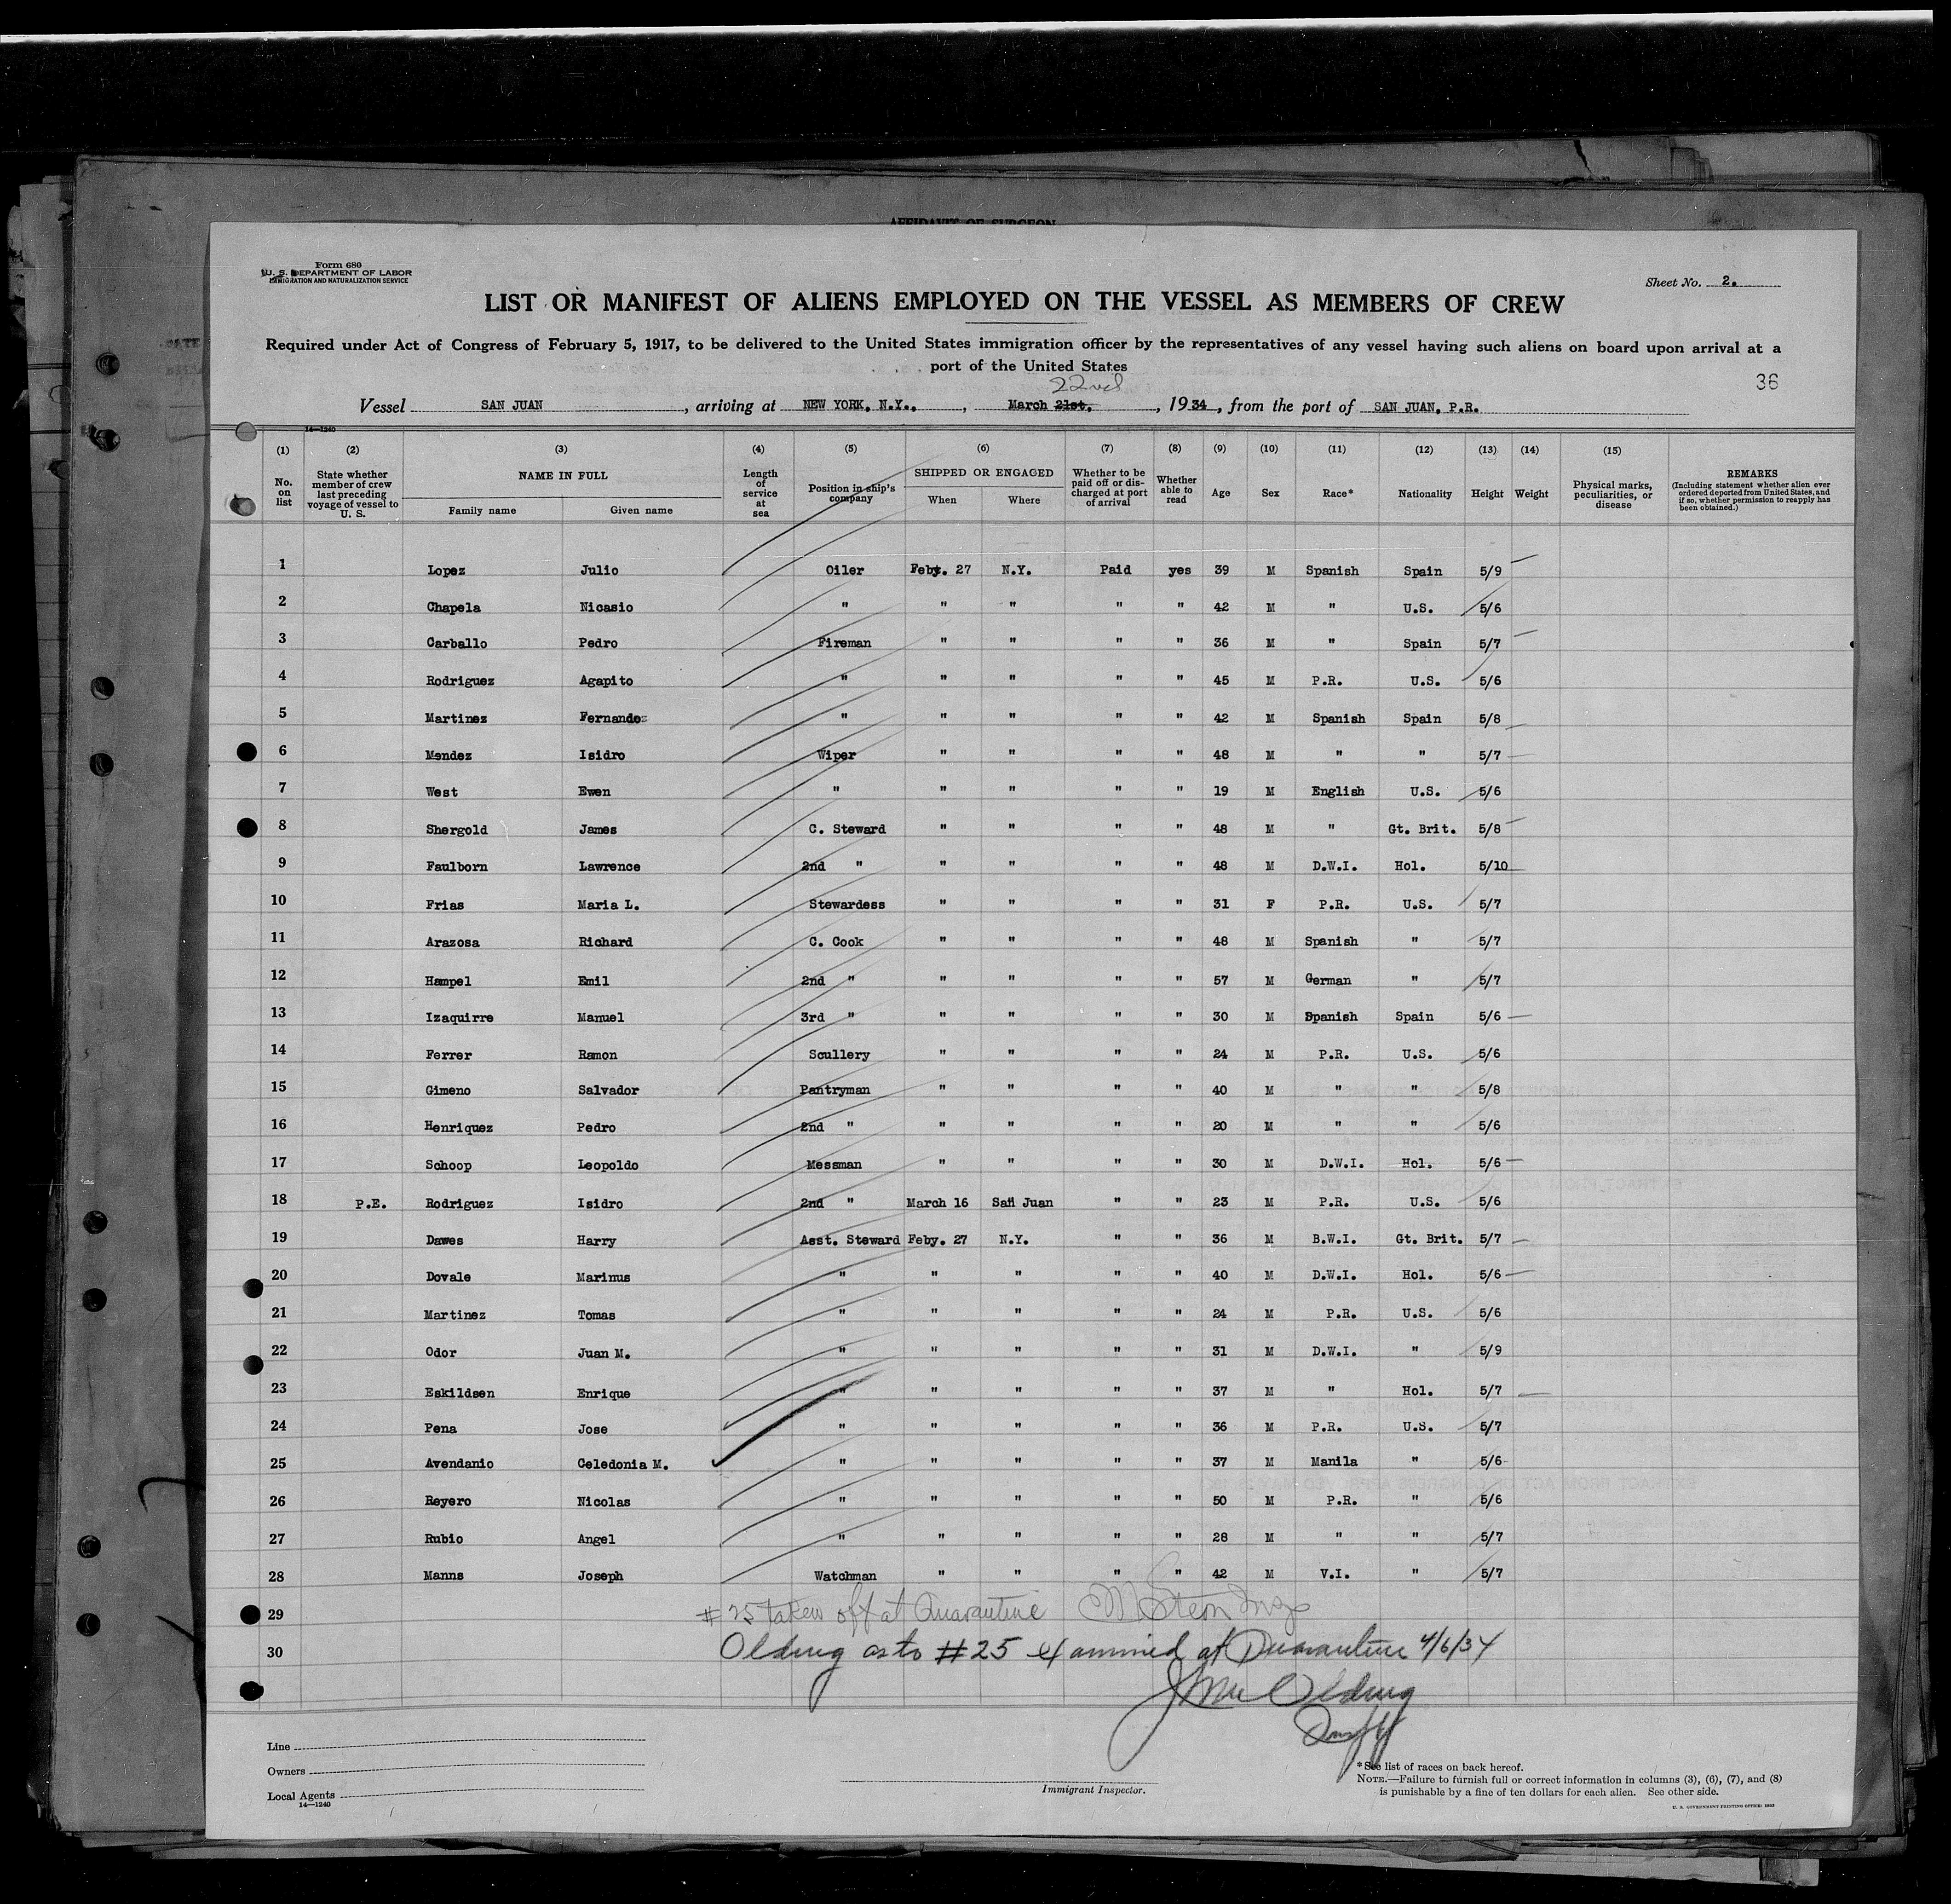 AFFIDAVIT OF SURGEON
Form 680
U. S. DEPARTMENT OF LABOR
IMMIGRATION AND NATURALIZATION SERVICE
Sheet No. 2.
LIST OR MANIFEST OF ALIENS EMPLOYED ON THE VESSEL AS MEMBERS OF CREW
Required under Act of Congress of February 5, 1917, to be delivered to the United States immigration officer by the representatives of any vessel having such aliens on board upon arrival at a
port of the United States
36
22nd
Vessel SAN JUAN, arriving at NEW YORK, N.Y., , March 21st, , 1934, from the port of SAN JUAN, P.R.
14—1240
(1) (2) (3) (4) (5) (6) (7) (8) (9) (10) (11) (12) (13) (14) (15)
No. on list State whether member of crew last preceding voyage of vessel to U. S. NAME IN FULL Family name Given name Length of service at sea Position in ship's company SHIPPED OR ENGAGED When Where Whether to be paid off or discharged at port of arrival Whether able to read Age Sex Race* Nationality Height Weight Physical marks, peculiarities, or disease REMARKS (Including statement whether alien ever ordered deported from United States, and if so, whether permission to reapply has been obtained.)
1 Lopez Julio Oiler Feby. 27 N.Y. Paid yes 39 M Spanish Spain 5/9
2 Chapela Nicasio " " " " " 42 M " U.S. 5/6
3 Carballo Pedro Fireman " " " " 36 M " Spain 5/7
4 Rodriguez Agapito " " " " " 45 M P.R. U.S. 5/6
5 Martinez Fernandez " " " " " 42 M Spanish Spain 5/8
6 Mendez Isidro Wiper " " " " 48 M " " 5/7
7 West Ewen " " " " " 19 M English U.S. 5/6
8 Shergold James C. Steward " " " " 48 M " Gt. Brit. 5/8
9 Faulborn Lawrence 2nd " " " " " 48 M D.W.I. Hol. 5/10
10 Frias Maria L. Stewardess " " " " 31 F P.R. U.S. 5/7
11 Arazosa Richard C. Cook " " " " 48 M Spanish " 5/7
12 Hampel Emil 2nd " " " " " 57 M German " 5/7
13 Izaquirre Manuel 3rd " " " " " 30 M Spanish Spain 5/6
14 Ferrer Ramon Scullery " " " " 24 M P.R. U.S. 5/6
15 Gimeno Salvador Pantryman " " " " 40 M " " 5/8
16 Henriquez Pedro 2nd " " " " " 20 M " " 5/6
17 Schoop Leopoldo Messman " " " " 30 M D.W.I. Hol. 5/6
18 P.E. Rodriguez Isidro 2nd " March 16 San Juan " " 23 M P.R. U.S. 5/6
19 Dawes Harry Asst. Steward Feby. 27 N.Y. " " 36 M B.W.I. Gt. Brit. 5/7
20 Dovale Marinus " " " " " 40 M D.W.I. Hol. 5/6
21 Martinez Tomas " " " " " 24 M P.R. U.S. 5/6
22 Odor Juan M. " " " " " 31 M D.W.I. " 5/9
23 Eskildsen Enrique " " " " " 37 M " Hol. 5/7
24 Pena Jose " " " " " 36 M P.R. U.S. 5/7
25 Avendanio Celedonia M. " " " " " 37 M Manila " 5/6
26 Reyero Nicolas " " " " " 50 M P.R. " 5/6
27 Rubio Angel " " " " " 28 M " " 5/7
28 Manns Joseph Watchman " " " " 42 M V.I. " 5/7
29 #25 taken off at Quarantine M Stern Insp
30 Olding as to #25 examined at Quarantine 4/6/34
Olding
Line
Owners
Local Agents
14—1240
Immigrant Inspector.
*See list of races on back hereof.
NOTE.—Failure to furnish full or correct information in columns (3), (6), (7), and (8)
is punishable by a fine of ten dollars for each alien. See other side.